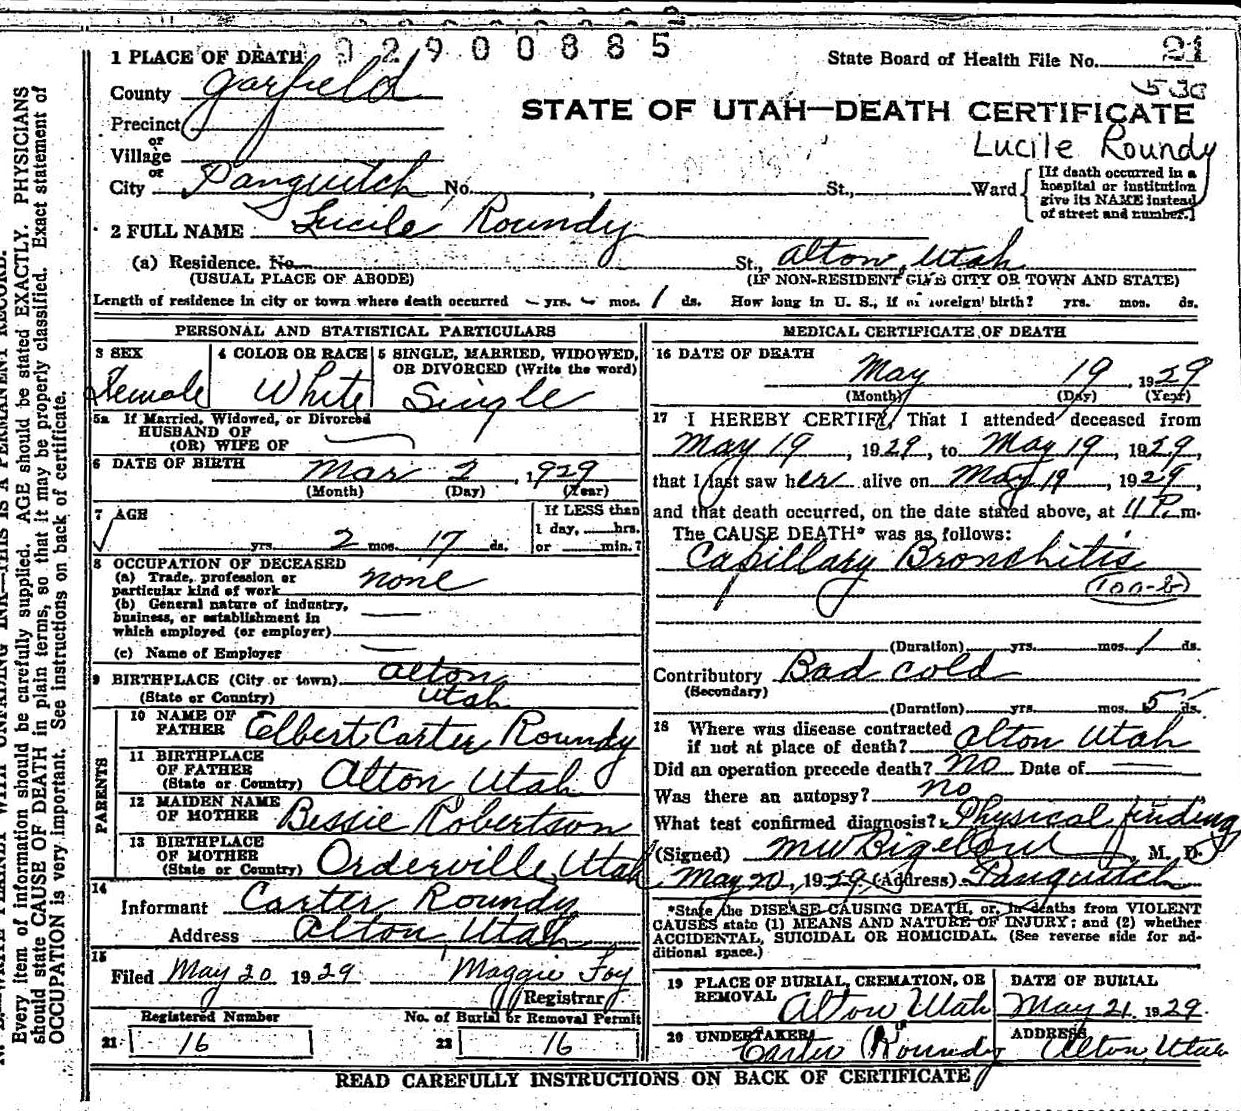 02900885
1 PLACE OF DEATH
State Board of Health File No. 21
530
County Garfield
STATE OF UTAH—DEATH CERTIFICATE
Precinct
or
Lucile Roundy
Village
or
City Panguitch No. , St., Ward
[If death occurred in a
hospital or institution
give its NAME instead
of street and number.]
2 FULL NAME Lucile Roundy
(a) Residence. No. St., Alton, Utah
(USUAL PLACE OF ABODE) (IF NON-RESIDENT GIVE CITY OR TOWN AND STATE)
Length of residence in city or town where death occurred yrs. mos. 1 ds. How long in U. S., if of foreign birth? yrs. mos. ds.
PERSONAL AND STATISTICAL PARTICULARS
3 SEX 4 COLOR OR RACE 5 SINGLE, MARRIED, WIDOWED,
OR DIVORCED (Write the word)
Female White Single
5a If Married, Widowed, or Divorced
HUSBAND OF
(OR) WIFE OF
6 DATE OF BIRTH Mar 2, 1929
(Month) (Day) (Year)
7 AGE If LESS than
1 day, hrs.
yrs. 2 mos. 17 ds. or min.?
8 OCCUPATION OF DECEASED
(a) Trade, profession or
particular kind of work none
(b) General nature of industry,
business, or establishment in
which employed (or employer)
(c) Name of Employer
9 BIRTHPLACE (City or town) Alton
(State or Country) Utah
PARENTS
10 NAME OF
FATHER Elbert Carter Roundy
11 BIRTHPLACE
OF FATHER
(State or Country) Alton Utah
12 MAIDEN NAME
OF MOTHER Bessie Robertson
13 BIRTHPLACE
OF MOTHER
(State or Country) Orderville, Utah
14
Informant Carter Roundy
Address Alton Utah
15
Filed May 20 1929 Maggie Foy
Registrar
Registered Number No. of Burial or Removal Permit
21 16 22 16
MEDICAL CERTIFICATE OF DEATH
16 DATE OF DEATH
May 19, 1929
(Month) (Day) (Year)
17 I HEREBY CERTIFY, That I attended deceased from
May 19, 1929, to May 19, 1929,
that I last saw her alive on May 19, 1929,
and that death occurred, on the date stated above, at 11 P. m.
The CAUSE DEATH* was as follows:
Capillary Bronchitis
(100-b)
(Duration) yrs. mos. 1 ds.
Contributory Bad cold
(Secondary)
(Duration) yrs. mos. 5 ds.
18 Where was disease contracted
if not at place of death? Alton Utah
Did an operation precede death? No Date of
Was there an autopsy? no
What test confirmed diagnosis? Physical finding
(Signed) MW Bigelow, M. D.
May 20, 1929 (Address) Panguitch
*State the DISEASE CAUSING DEATH, or, in deaths from VIOLENT
CAUSES state (1) MEANS AND NATURE OF INJURY; and (2) whether
ACCIDENTAL, SUICIDAL OR HOMICIDAL. (See reverse side for ad-
ditional space.)
19 PLACE OF BURIAL, CREMATION, OR
REMOVAL Alton Utah
DATE OF BURIAL
May 21 1929
20 UNDERTAKER
Carter Roundy
ADDRESS
Alton, Utah
READ CAREFULLY INSTRUCTIONS ON BACK OF CERTIFICATE
WRITE PLAINLY WITH UNFADING INK—THIS IS A PERMANENT RECORD.
Every item of information should be carefully supplied. AGE should be stated EXACTLY. PHYSICIANS
should state CAUSE OF DEATH in plain terms, so that it may be properly classified. Exact statement of
OCCUPATION is very important. See instructions on back of certificate.